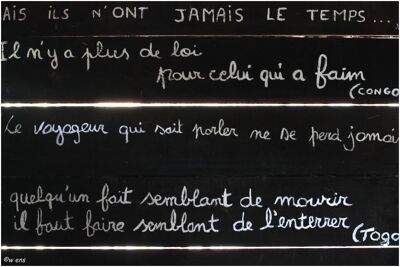 AIS ILS N'ONT JAMAIS LE TEMPS...
Il n'y a plus de loi
pour celui qui a faim
(CONGO
Le voyageur qui sait parler ne se perd jamai
quelqu'un fait semblant de mourir
il faut faire semblant de l'enterrer (Togo
©w ens